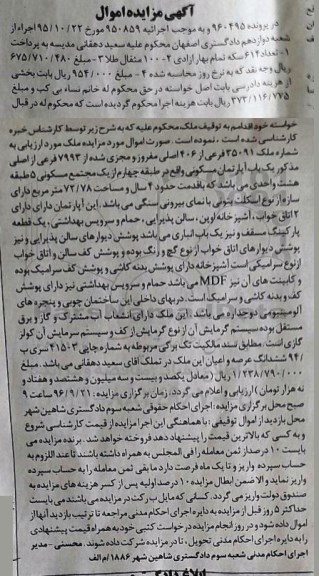 آگهی مزایده اموال
در پرونده ۹۶۰۴۹۵ و به موجب اجرائیه ۹۵۰۸۵۹ مورخ ۹۵/۱۰/۲۲ اجراء از
شعبه دوازدهم دادگستری اصفهان محکوم علیه سعید دهقانی مدیسه به پرداخت
۱- تعداد ۶۱۴ سکه تمام بهار آزادی ۲- ۱۰۰ مثقال طلا ۳- مبلغ ۶۷۵/۷۱۰/۴۸۰
ریال وجه نقد که به نرخ روز محاسبه شده ۴- مبلغ ۹۵۴/۰۰۰ ریال بابت بخشی
از هزینه دادرسی بابت اصل خواسته در حق محکوم له خانم نساء بی کب و مبلغ
۳۷۳/۱۱۶/۷۷۵ ریال بابت هزینه اجرا محکوم گردیده است که محکوم له در قبال
خواسته خود اقدام به توقیف ملک محکوم علیه که به شرح زیر توسط کارشناس خبره
کارشناسی شده است، نموده است. صورت اموال مورد مزایده ملک مورد ارزیابی به
شماره ملک ۳۵۰۹۱ فرعی از ۴۰۶ اصلی مفروز و مجزی شده از ۷۹۹۳ فرعی از اصلی
مذکور یک باب آپارتمان مسکونی واقع در طبقه چهارم از یک مجتمع مسکونی ۵ طبقه
هشت واحدی می باشد که باقدمت حدود ۴ سال و مساحت ۷۲/۷۸ متر مربع دارای
سازه از نوع اسکلت بتونی با نمای بیرونی سنگی می باشد. این آپارتمان دارای دارای
۲ اتاق خواب، آشپزخانه اوپن، سالن پذیرایی، حمام و سرویس بهداشتی، یک قطعه
پارکینگ مسقف و نیز یک باب انباری می باشد پوشش دیوارهای سالن پذیرایی و نیز
پوشش دیوارهای اتاق خواب از نوع گچ و رنگ بوده و پوشش کف سالن و اتاق خواب
از نوع سرامیکی است آشپزخانه دارای پوشش بدنه کاشی و پوشش کف سرامیک بوده
و کابینت های آن نیز MDF می باشد حمام و سرویس بهداشتی نیز دارای پوشش
کف و بدنه کاشی و سرامیک است. درهای داخلی این ساختمان چوبی و پنجره های
آلومینیومی دوجداره می باشد. این ملک دارای انشعاب آب مشترک و گاز و برق
مستقل بوده سیستم گرمایش آن از نوع گرمایش از کف و سیستم سرمایش آن کولر
گازی است. مطابق سند مالکیت تک برگی مربوطه به شماره چاپی ۴۱۵۰۳ سری ب
۹۴/ ششدانگ عرصه و اعیان این ملک در تملک آقای سعید دهقانی می باشد. مبلغ
۱/۲۳۸/۷۹۰/۰۰۰ ریال (معادل یکصد و بیست و سه میلیون و هشتصد و هفتاد و
نه هزار تومان) ارزیابی و اعلام می گردد. زمان برگزاری مزایده: ۹۶/۹/۲۱ ساعت ۹
صبح محل برگزاری مزایده: اجرای احکام حقوقی شعبه سوم دادگستری شاهین شهر
محل بازدید از اموال توقیفی: با هماهنگی این اجرا مزایده از قیمت کارشناسی شروع
و به کسی که بالاترین قیمت را پیشنهاد دهد فروخته خواهد شد. برنده مزایده می
بایست ۱۰ درصد از ثمن معامله را فی المجلس به همراه داشته باشند تا عند اللزوم به
حساب سپرده واریز و تا یک ماه فرصت دارد ما بقی ثمن معامله را به حساب سپرده
واریز نماید و الا ضمن ابطال مزایده ۱۰ درصد اولیه پس از کسر هزینه های مزایده به
صندوق دولت واریز می گردد. کسانی که مایل به شرکت در مزایده می باشند می بایست
حداکثر ۵ روز قبل از مزایده به دایره اجرای احکام مدنی مراجعه تا ترتیب بازدید آنها از
اموال داده شود و در روز انجام مزایده درخواست کتبی خود به همراه قیمت پیشنهادی
را به دایره اجرای احکام مدنی تحویل، تا در مزایده شرکت داده شوند. محسنی - مدیر
اجرای احکام مدنی شعبه سوم دادگستری شاهین شهر ۱۸۸۶/م الف